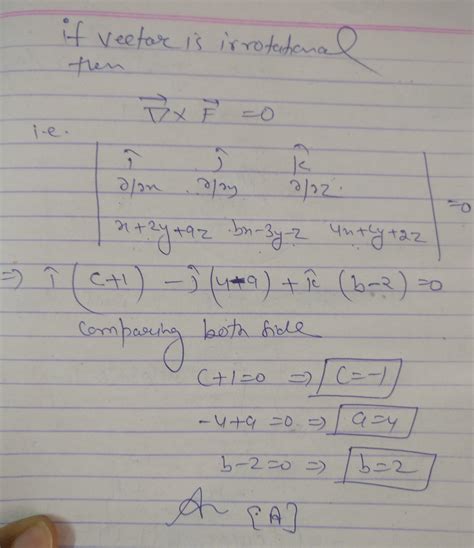 if vector is irrotational
then
∇⃗ × F⃗ = 0
i.e.
| î ĵ k̂ |
| ∂/∂x ∂/∂y ∂/∂z | = 0
| x+2y+az bx-3y-z 4x+cy+2z |
⇒ î (c+1) - ĵ (4-a) + k̂ (b-2) = 0
comparing both side
c+1=0 ⇒ c=-1
-4+a=0 ⇒ a=4
b-2=0 ⇒ b=2
[A]